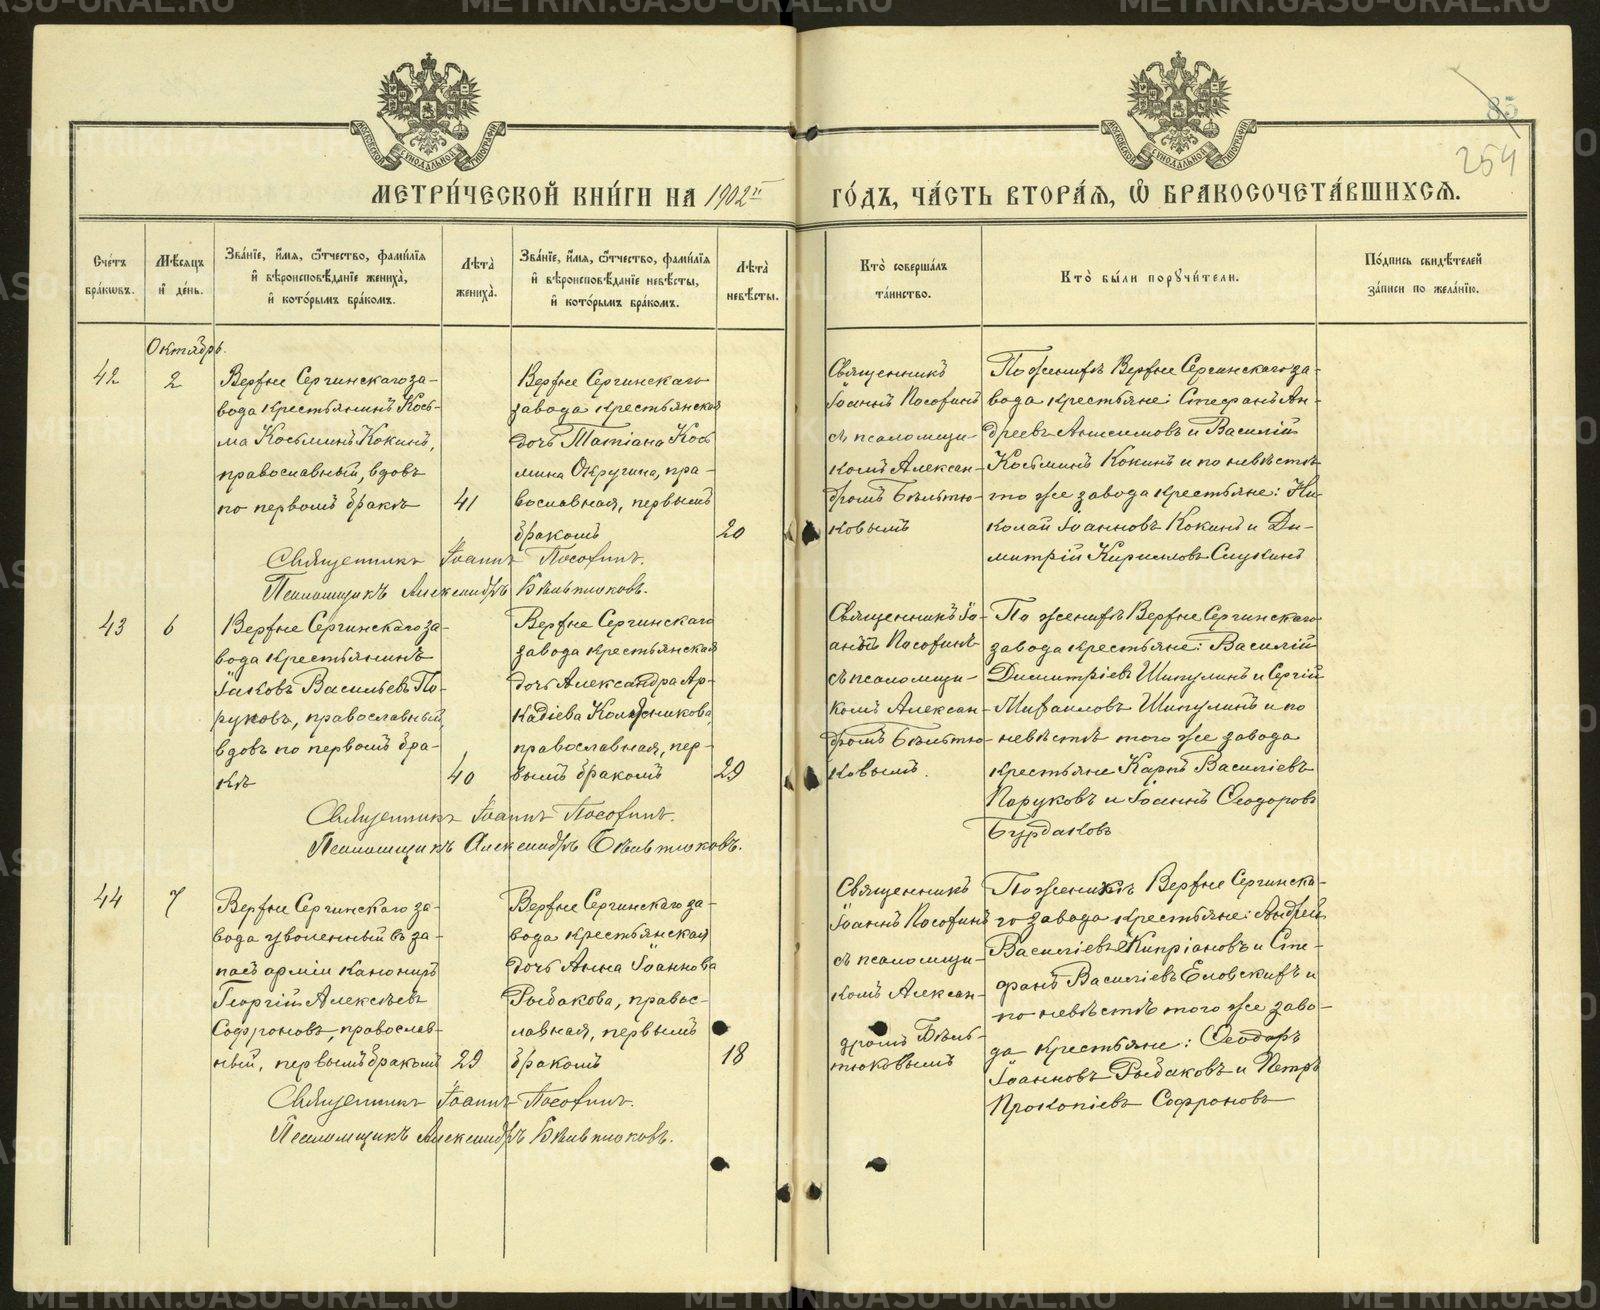 85
254
МЕТРИ́ЧЕСКОЙ КНИ́ГИ НА 1902й ГО́ДЪ, ЧА́СТЬ ВТОРА́Я, Ѽ БРАКОСОЧЕТА́ВШИХСЯ.
Сче́тъ бра́ковъ.
Мѣ́сяцъ и де́нь.
Зва́нїе, и́мя, ѻ҆́тчество, фами́лїя и вѣроисповѣ́данїе жениха̀, и кото́рымъ бра́комъ.
Лѣ́та жениха̀.
Зва́нїе, и́мя, ѻ҆́тчество, фами́лїя и вѣроисповѣ́данїе невѣ́сты, и кото́рымъ бра́комъ.
Лѣ́та невѣ́сты.
Кто̀ соверша́лъ та́инство.
Кто̀ бы́ли пору́чители.
По́дпись свидѣ́телей за́писи по жела́нїю.
Октябрь.
42
2
Верхне Сергинскаго за-
вода крестьянинъ Кось-
ма Косьминъ Кокинъ,
православный, вдовъ
по первомъ бракѣ
41
Верхне Сергинскаго
завода крестьянская
дочь Татіана Кось
мина Округина, пра-
вославная, первымъ
бракомъ
20
Священникъ
Іоаннъ Посохинъ
съ псаломщи-
комъ Алексан-
дромъ Бѣльтю-
ковымъ
По женихѣ Верхне Сергинскаго за-
вода крестьяне: Стефанъ Ан-
дреевъ Анисимовъ и Василій
Косьминъ Кокинъ и по невѣстѣ
то же завода крестьяне: Ни-
колай Іоанновъ Кокинъ и Ди-
митрій Кириловъ Слукинъ
Священникъ Іоаннъ Посохинъ.
Псаломщикъ Александръ Бѣльтюковъ.
43
6
Верхне Сергинскаго за-
вода крестьянинъ
Іаковъ Васильевъ По-
руковъ, православный,
вдовъ по первомъ бра-
кѣ
40
Верхне Сергинскаго
завода крестьянская
дочь Александра Ар-
кадіева Колесникова,
православная, пер-
вымъ бракомъ
29
Священникъ Іо-
аннъ Посохинъ
съ псаломщи-
комъ Алексан-
дромъ Бѣльтю-
ковымъ.
По женихѣ Верхне Сергинскаго
завода крестьяне: Василій
Димитріевъ Шипулинъ и Сергій
Михаиловъ Шипулинъ и по
невѣстѣ того же завода
крестьяне Карпъ Василіевъ
Паруковъ и Іоаннъ Ѳеодоровъ
Бурдаковъ
Священникъ Іоаннъ Посохинъ.
Псаломщикъ Александръ Бѣльтюковъ.
44
7
Верхне Сергинскаго за-
вода уволенный въ за-
пасъ арміи канониръ
Георгій Алексѣевъ
Софроновъ, православ-
ный, первымъ бракомъ
29
Верхне Сергинскаго за-
вода крестьянская
дочь Анна Іоаннова
Рыбакова, правос-
лавная, первымъ
бракомъ
18
Священникъ
Іоаннъ Посохинъ
съ псаломщи-
комъ Алексан-
дромъ Бѣль-
тюковымъ
По женихѣ Верхне Сергинска-
го завода крестьяне: Андрей
Василіевъ Кипріановъ и Сте-
фанъ Василіевъ Еловскихъ и
по невѣстѣ того же заво-
да крестьяне: Ѳеодоръ
Іоанновъ Рыбаковъ и Петръ
Прокопіевъ Софроновъ
Священникъ Іоаннъ Посохинъ.
Псаломщикъ Александръ Бѣльтюковъ.
METRIKI.GASO-URAL.RU